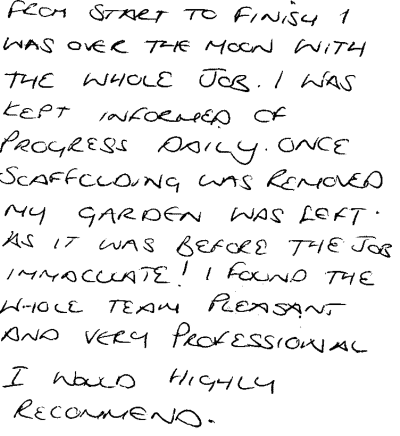 FROM START TO FINISH I
WAS OVER THE MOON WITH
THE WHOLE JOB. I WAS
KEPT INFORMED OF
PROGRESS DAILY. ONCE
SCAFFOLDING WAS REMOVED
MY GARDEN WAS LEFT.
AS IT WAS BEFORE THE JOB
IMMACULATE! I FOUND THE
WHOLE TEAM PLEASANT
AND VERY PROFESSIONAL
I WOULD HIGHLY
RECOMMEND.